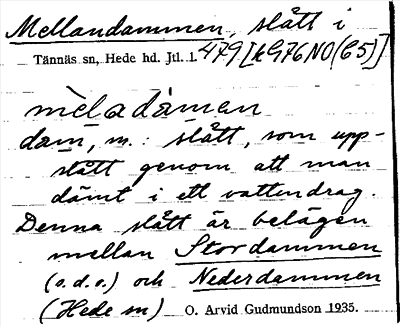 Mellandammen, slått i
Tännäs sn, Hede hd. Jtl. l. 479 [kG76NO(65)]
mèladàmen
dam, m.: slått, som upp-
stått genom att man
dämt i ett vattendrag.
Denna slått är belägen
mellan Stordammen
(o.d.o.) och Nederdammen
(Hede sn) O. Arvid Gudmundson 1935.